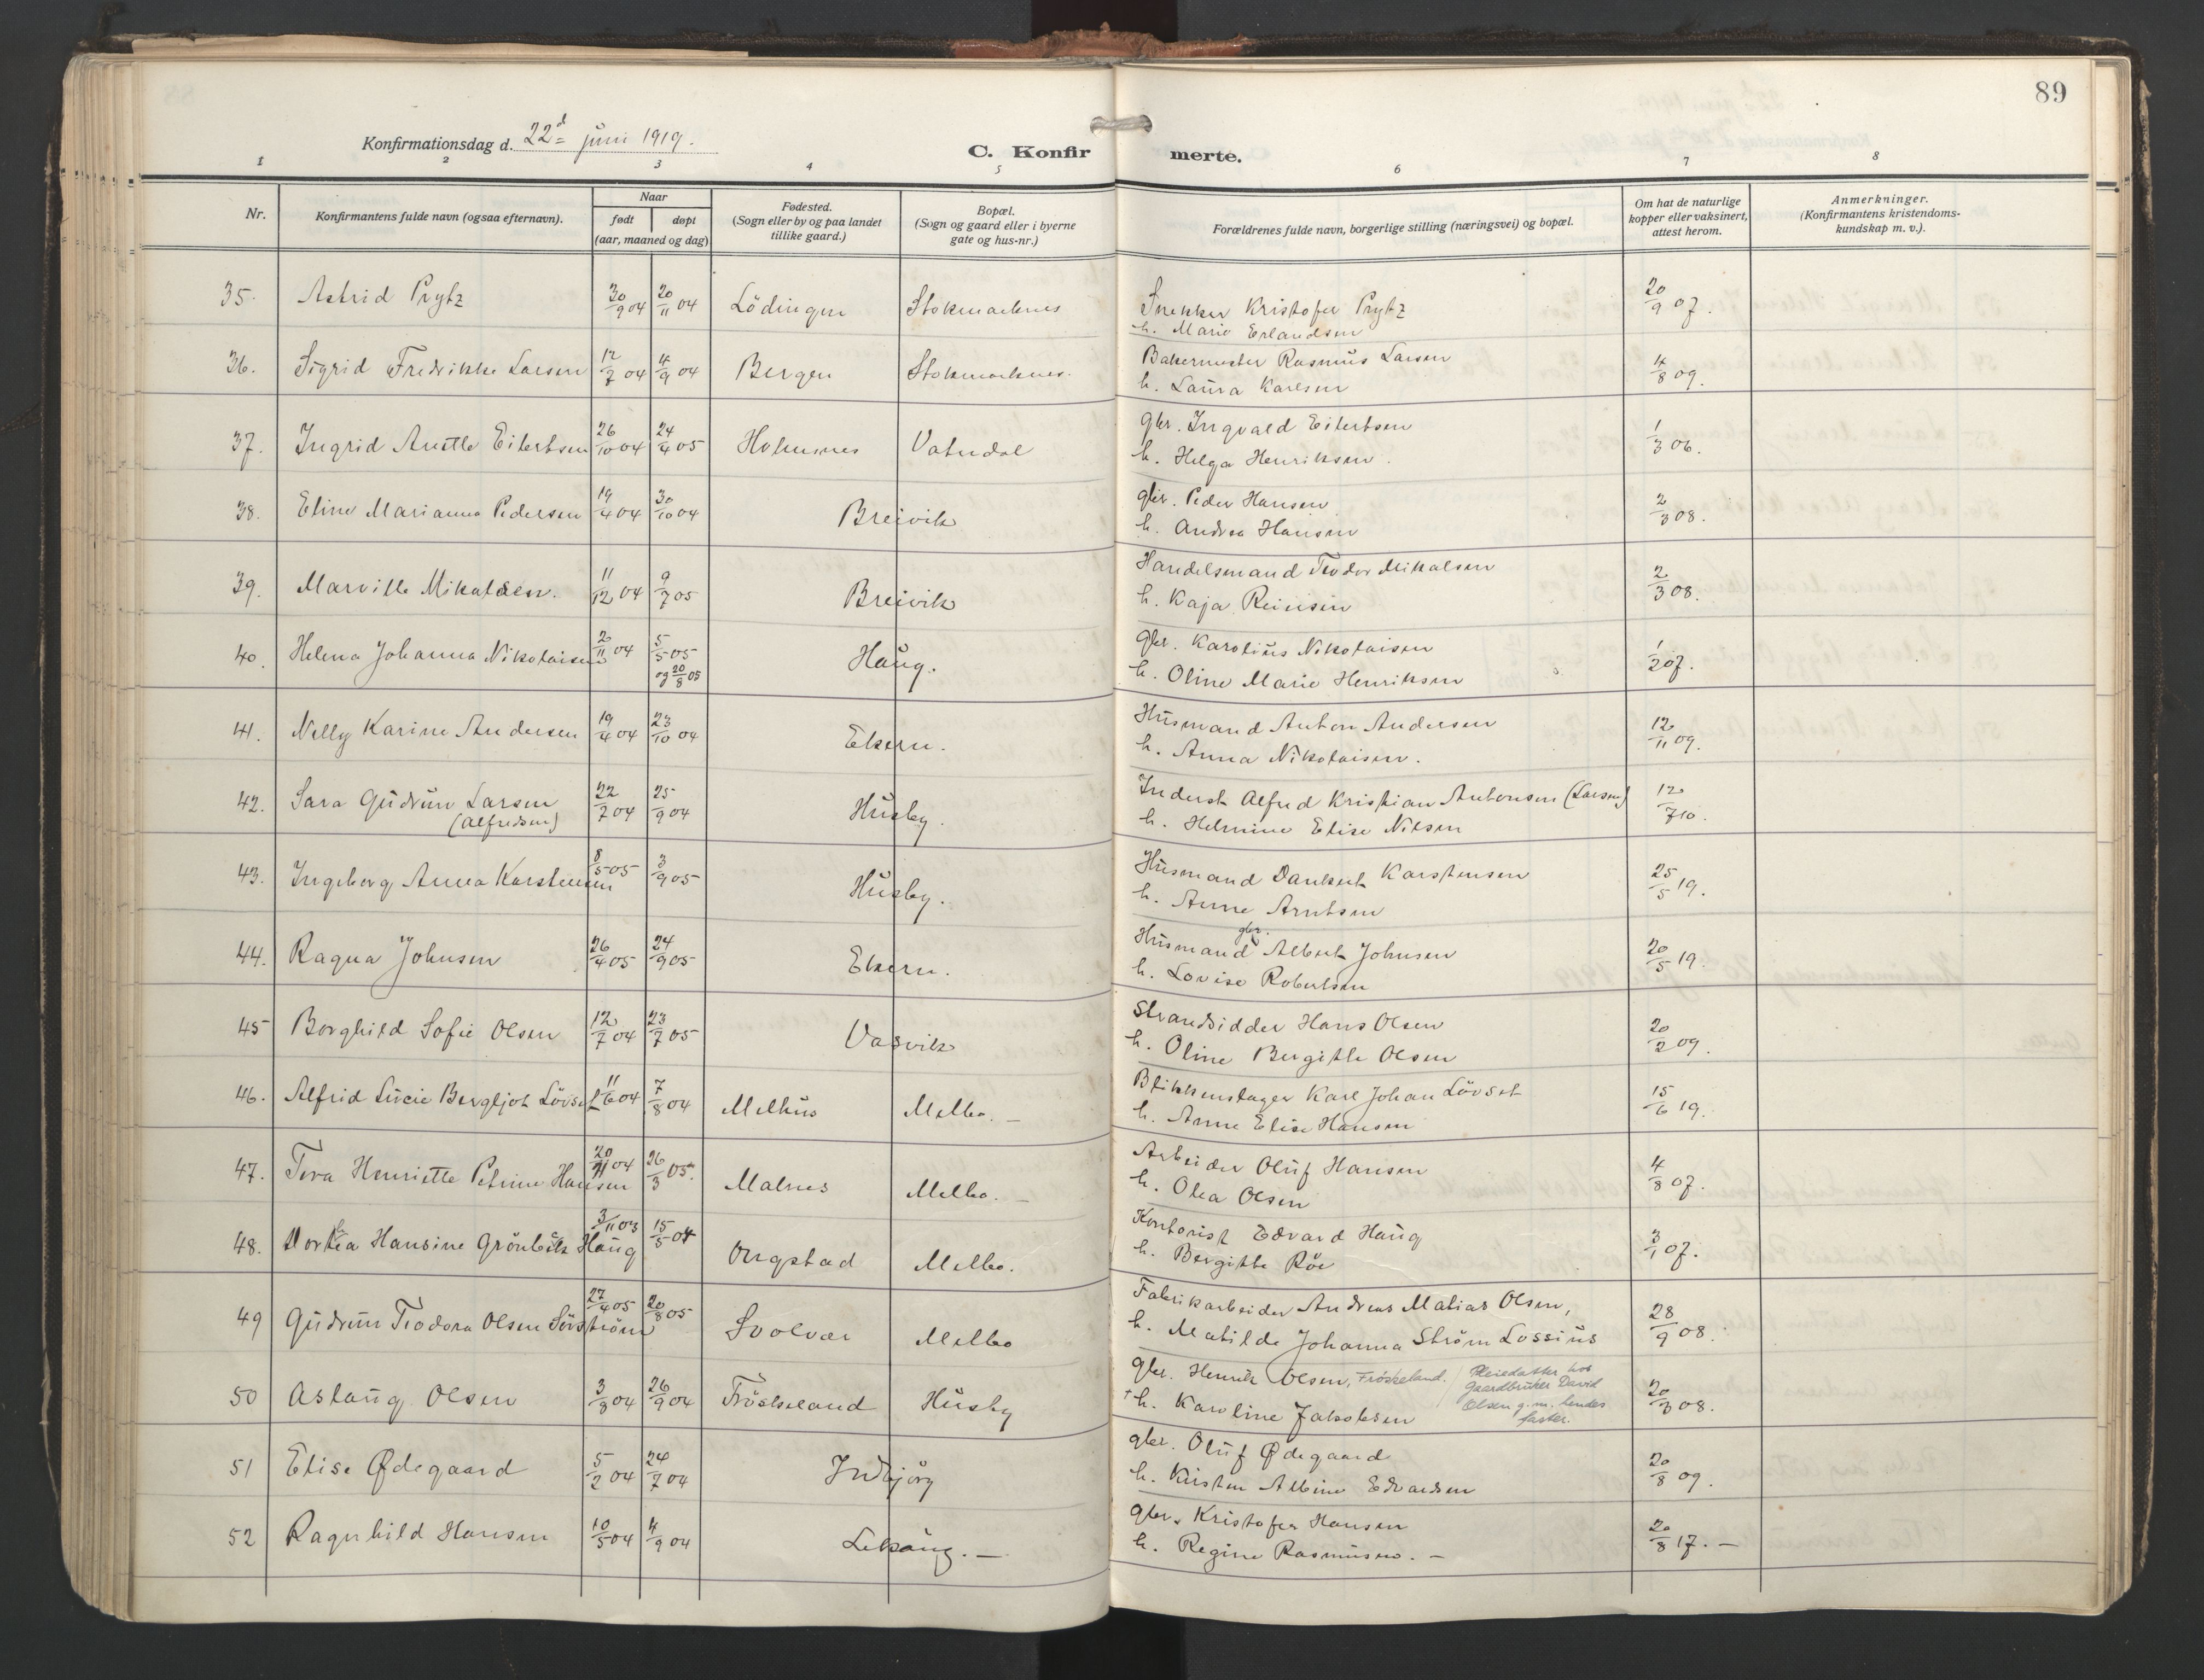 89
Konfirmationsdag d. 22d juni 1919.
C. Konfirmerte.
1 2 3 4 5 6 7 8
Nr. Konfirmantens fulde navn (ogsaa efternavn). Naar født døpt (aar, maaned og dag) Fødested. (Sogn eller by og paa landet tillike gaard.) Bopæl. (Sogn og gaard eller i byerne gate og hus-nr.) Forældrenes fulde navn, borgerlige stilling (næringsvei) og bopæl. Om hat de naturlige kopper eller vaksinert, attest herom. Anmerkninger. (Konfirmantens kristendomskundskap m. v.).
35. Astrid Prytz 30/9 04 20/11 04 Lödingen Stokmarknes Snekker Kristofer Prytz 20/9 07.
h. Marie Erlandsen
36. Sigrid Fredrikke Larsen 12/7 04 4/9 04 Bergen Stokmarknes. Bakermester Rasmus Larsen 4/8 09.
h. Laura Karlsen
37. Ingrid Anette Eilertsen 26/10 04 24/4 05 Holmsnes Vatndal gbr. Ingvald Eilertsen 1/3 06.
h. Helga Henriksen.
38. Eline Marianna Pedersen 19/4 04 30/10 04 Breivik gbr. Peder Hansen 2/3 08.
h. Andrea Hansen
39. Marville Mikalsen. 11/12 04 9/7 05 Breivik Handelsmand Teodor Mikalsen 2/3 08.
h. Kaja Reinsen
40. Helena Johanna Nikolaisen 2/11 04 5/5 05 og 20/8 05 Haug. gbr. Karolius Nikolaisen 1/2 07.
h. Oline Marie Henriksen
41. Nelly Karine Andersen 19/4 04 23/10 04 Ekern. Husmand Anton Andersen 12/11 09.
h. Anna Nikolaisen.
42. Sara Gudrun Larsen 22/7 04 25/9 04 Husby. Inderst Alfred Kristian Antonsen (Larsen) 12/7 10.
(Alfredsen) h. Helmine Elise Nilsen
43. Ingeborg Anna Karstensen 8/5 05 3/9 05 Husby. Husmand Dankert Karstensen 25/5 19.
h. Anne Arntsen
44. Ragna Johnsen 26/4 05 24/9 05 Ekern. Husmand gbr. Albert Johnsen 20/5 19.
h. Lovise Robertsen
45 Borghild Sofie Olsen 12/7 04 23/7 05 Vasvik Strandsidder Hans Olsen 20/2 09.
h. Oline Bergitte Olsen
46. Alfrid Lucie Bergljot Lövset 11/6 04 7/8 04 Melhus Melbo. — Blikkenslager Karl Johan Lövset 15/6 19.
h. Anne Elise Hansen
47. Tora Henriette Petrine Hansen 20/11 04 26/3 05. Malnes Melbo. — Arbeider Oluf Hansen 4/8 07.
h. Olea Olsen
48. Dorthea Hansine Grönbeck Haug 3/11 03 15/5 04 Ongstad Melbo. Kontorist Edvard Haug 3/1 07.
h. Bergitte Röe
49 Gudrun Teodora Olsen Sörström 27/4 05 20/8 05 Svolvær Melbo Fabrikarbeider Andreas Matias Olsen, 28/9 08.
h. Matilde Johanna Ström Lossius
50 Aslaug Olsen 3/8 04 26/9 04 Fröskeland Husby gbr. Henrik Olsen, Fröskeland. 20/3 08.
† h. Karoline Jakobsen
Pleiedatter hos
Gaardbruker David
Olsen g. m. hendes
faster.
51 Elise Ødegaard 5/2 04 24/7 04 Indbjörg gbr. Oluf Ødegaard 20/8 09.
h. Kirsten Albine Edvardsen
52 Ragnhild Hansen 10/5 04 4/9 04 Lekang. — gbr. Kristofer Hansen 20/8 17. —
h. Regine Rasmussen. —